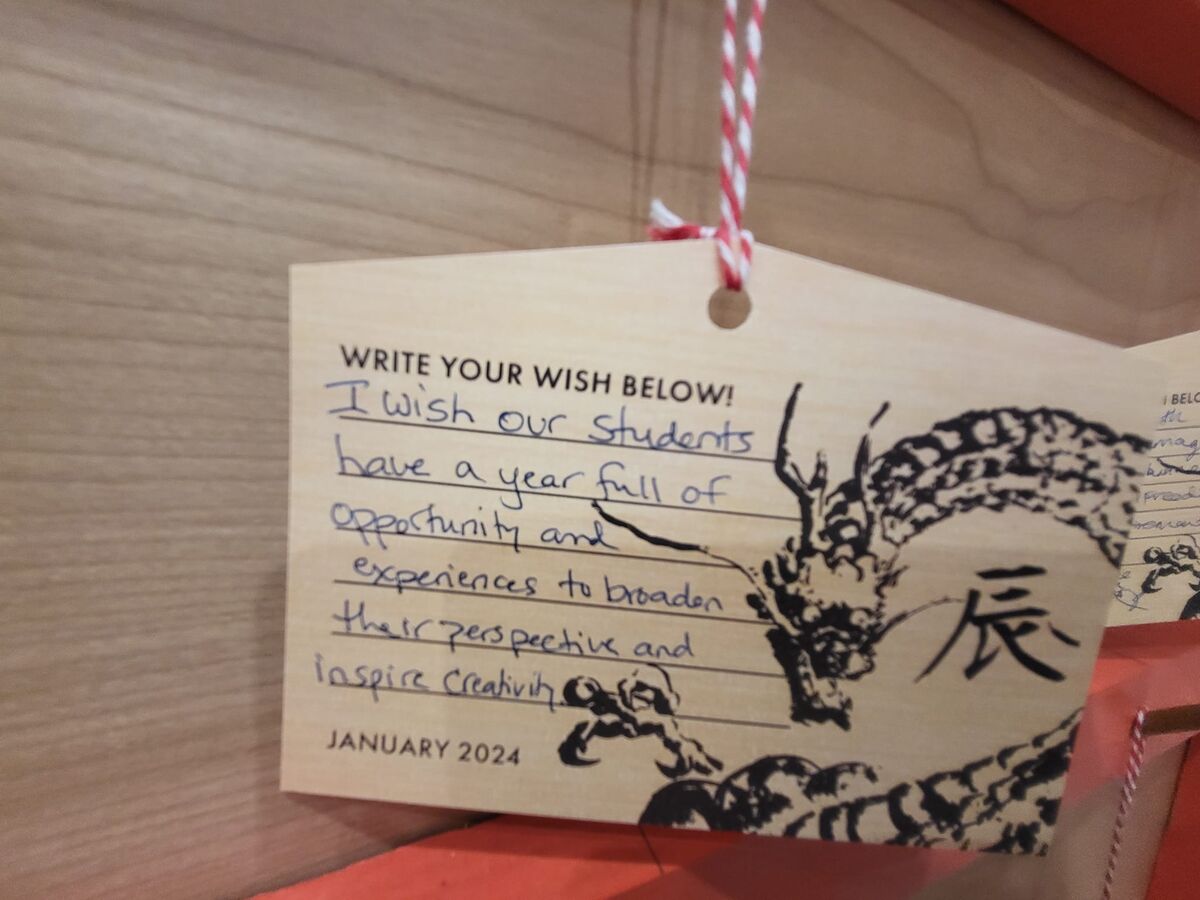 WRITE YOUR WISH BELOW!
I wish our students
have a year full of
opportunity and
experiences to broaden
their perspective and
inspire creativity
JANUARY 2024
辰